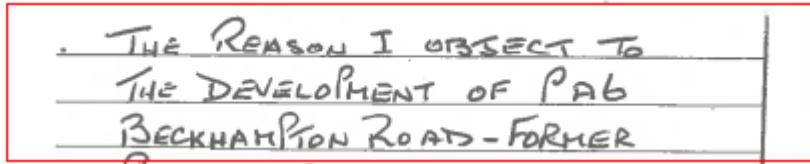 . THE REASON I OBJECT TO
THE DEVELOPMENT OF PA6
BECKHAMPTON ROAD - FORMER